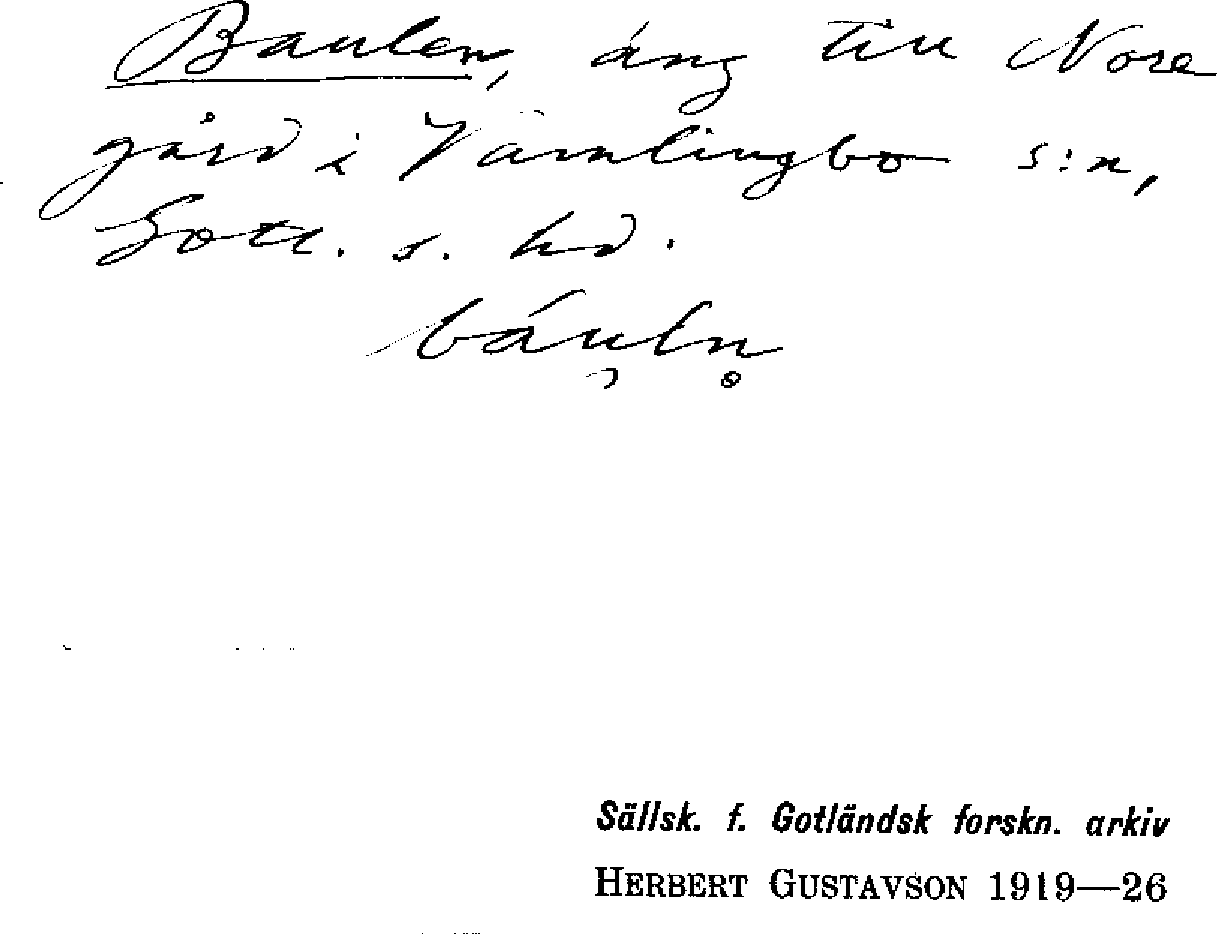 Baulen, äng till Nore
gård i Vamlingbo s:n,
Gotl. s. hd.
báuln̥
Sällsk. f. Gotländsk forskn. arkiv
HERBERT GUSTAVSON 1919—26